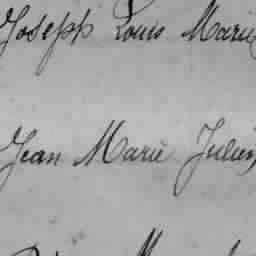 Joseph Louis Marie
Jean Marie Julien